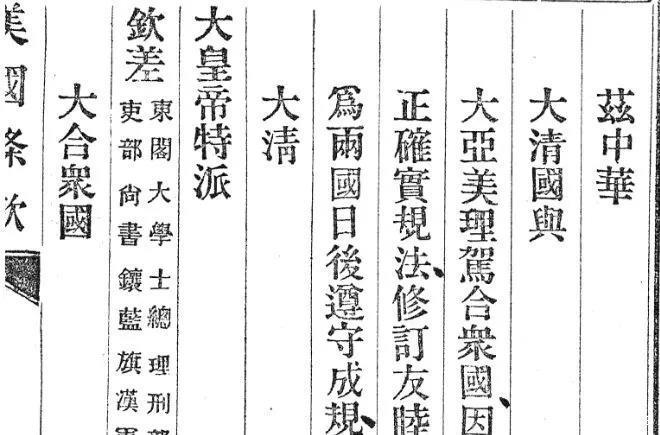 茲中華
大清國與
大亞美理駕合衆國、因
正確實規法、修訂友睦
爲兩國日後遵守成規、
大清
大皇帝特派
欽差
東閣大學士總理刑部
吏部尙書鑲藍旗漢軍
大合衆國
美國條款